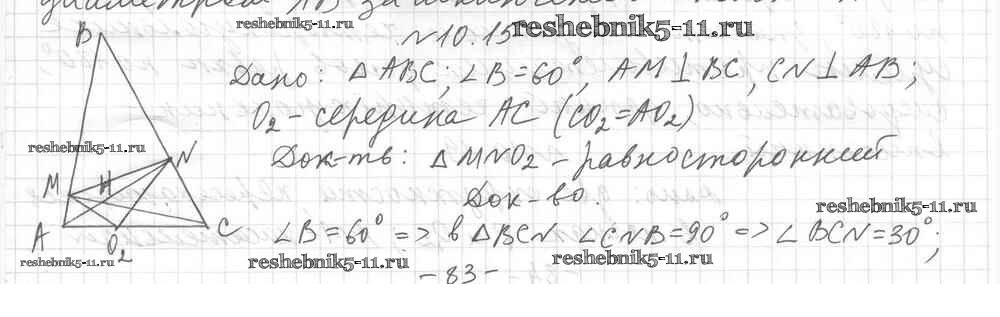 диаметром AB
reshebnik5-11.ru
№10.15
reshebnik5-11.ru
B
Дано: △ABC; ∠B=60°, AM⊥BC, CN⊥AB;
O₂-середина AC (CO₂=AO₂)
reshebnik5-11.ru
N
Док-ть: △MNO₂-равносторонний
M
H
Док-во.
reshebnik5-11.ru
A
O₂
C
∠B=60° => в △BCN ∠CNB=90° => ∠BCN=30°;
reshebnik5-11.ru
reshebnik5-11.ru
reshebnik5-11.ru
-83-